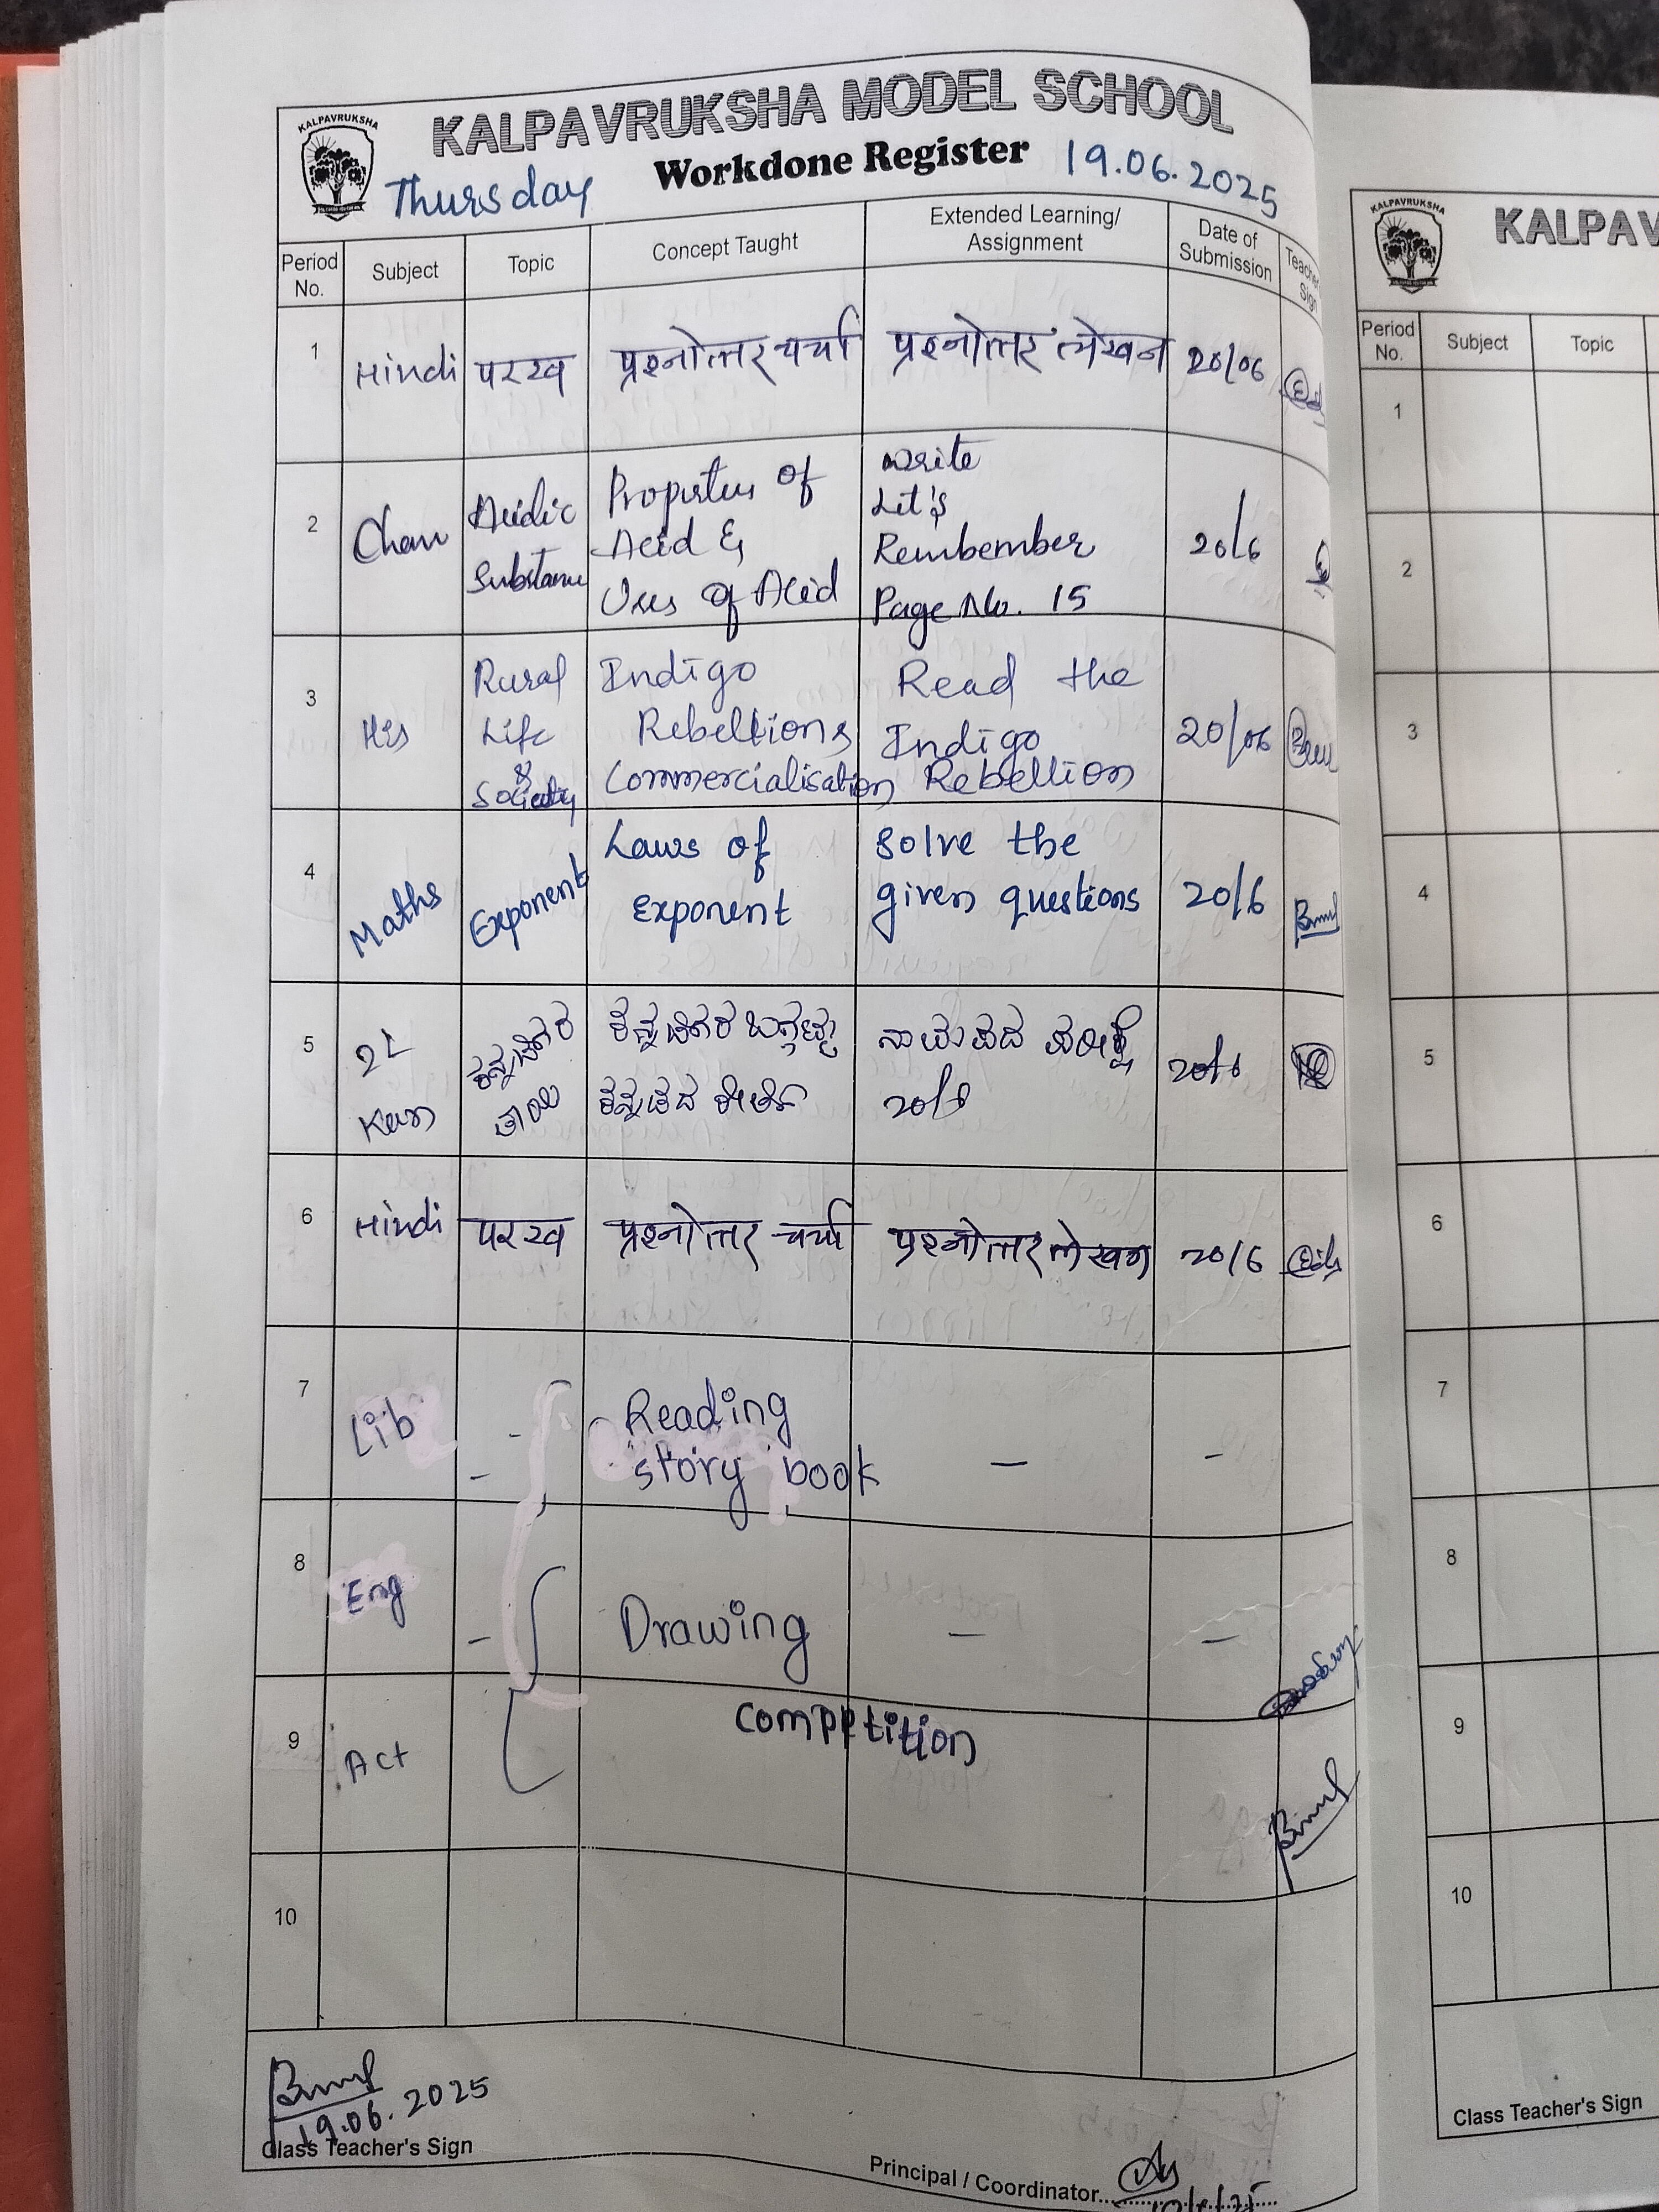 KALPAVRUKSHA
KALPAVRUKSHA MODEL SCHOOL
Workdone Register
Thursday
19.06.2025
Period No. Subject Topic Concept Taught Extended Learning/ Assignment Date of Submission Teacher Sign
1 Hindi परख प्रश्नोत्तर चर्चा प्रश्नोत्तर लेखन 20/06
2 Chem Acidic Substance Properties of Acid & Uses of Acid Write Let's Rembember Page No. 15 20/6
3 His Rural Life & Society Indigo Rebellions Commercialisation Read the Indigo Rebellion 20/06
4 Maths Exponent Laws of Exponent Solve the given questions 20/6
5 2L Kan ಕನ್ನಡಿಗರ ತಾಯಿ ಕನ್ನಡಿಗರ ಒಗ್ಗಟ್ಟು ಕನ್ನಡದ ಕೀರ್ತಿ 20/6 20/6
6 Hindi परख प्रश्नोत्तर चर्चा प्रश्नोत्तर लेखन 20/6
7 Lib - Reading story book - -
8 Eng - Drawing - -
9 Act Comptition
10
19.06.2025
Class Teacher's Sign
Principal / Coordinator
KALPAVRUKSHA
KALPAV
Period No. Subject Topic
1
2
3
4
5
6
7
8
9
10
Class Teacher's Sign